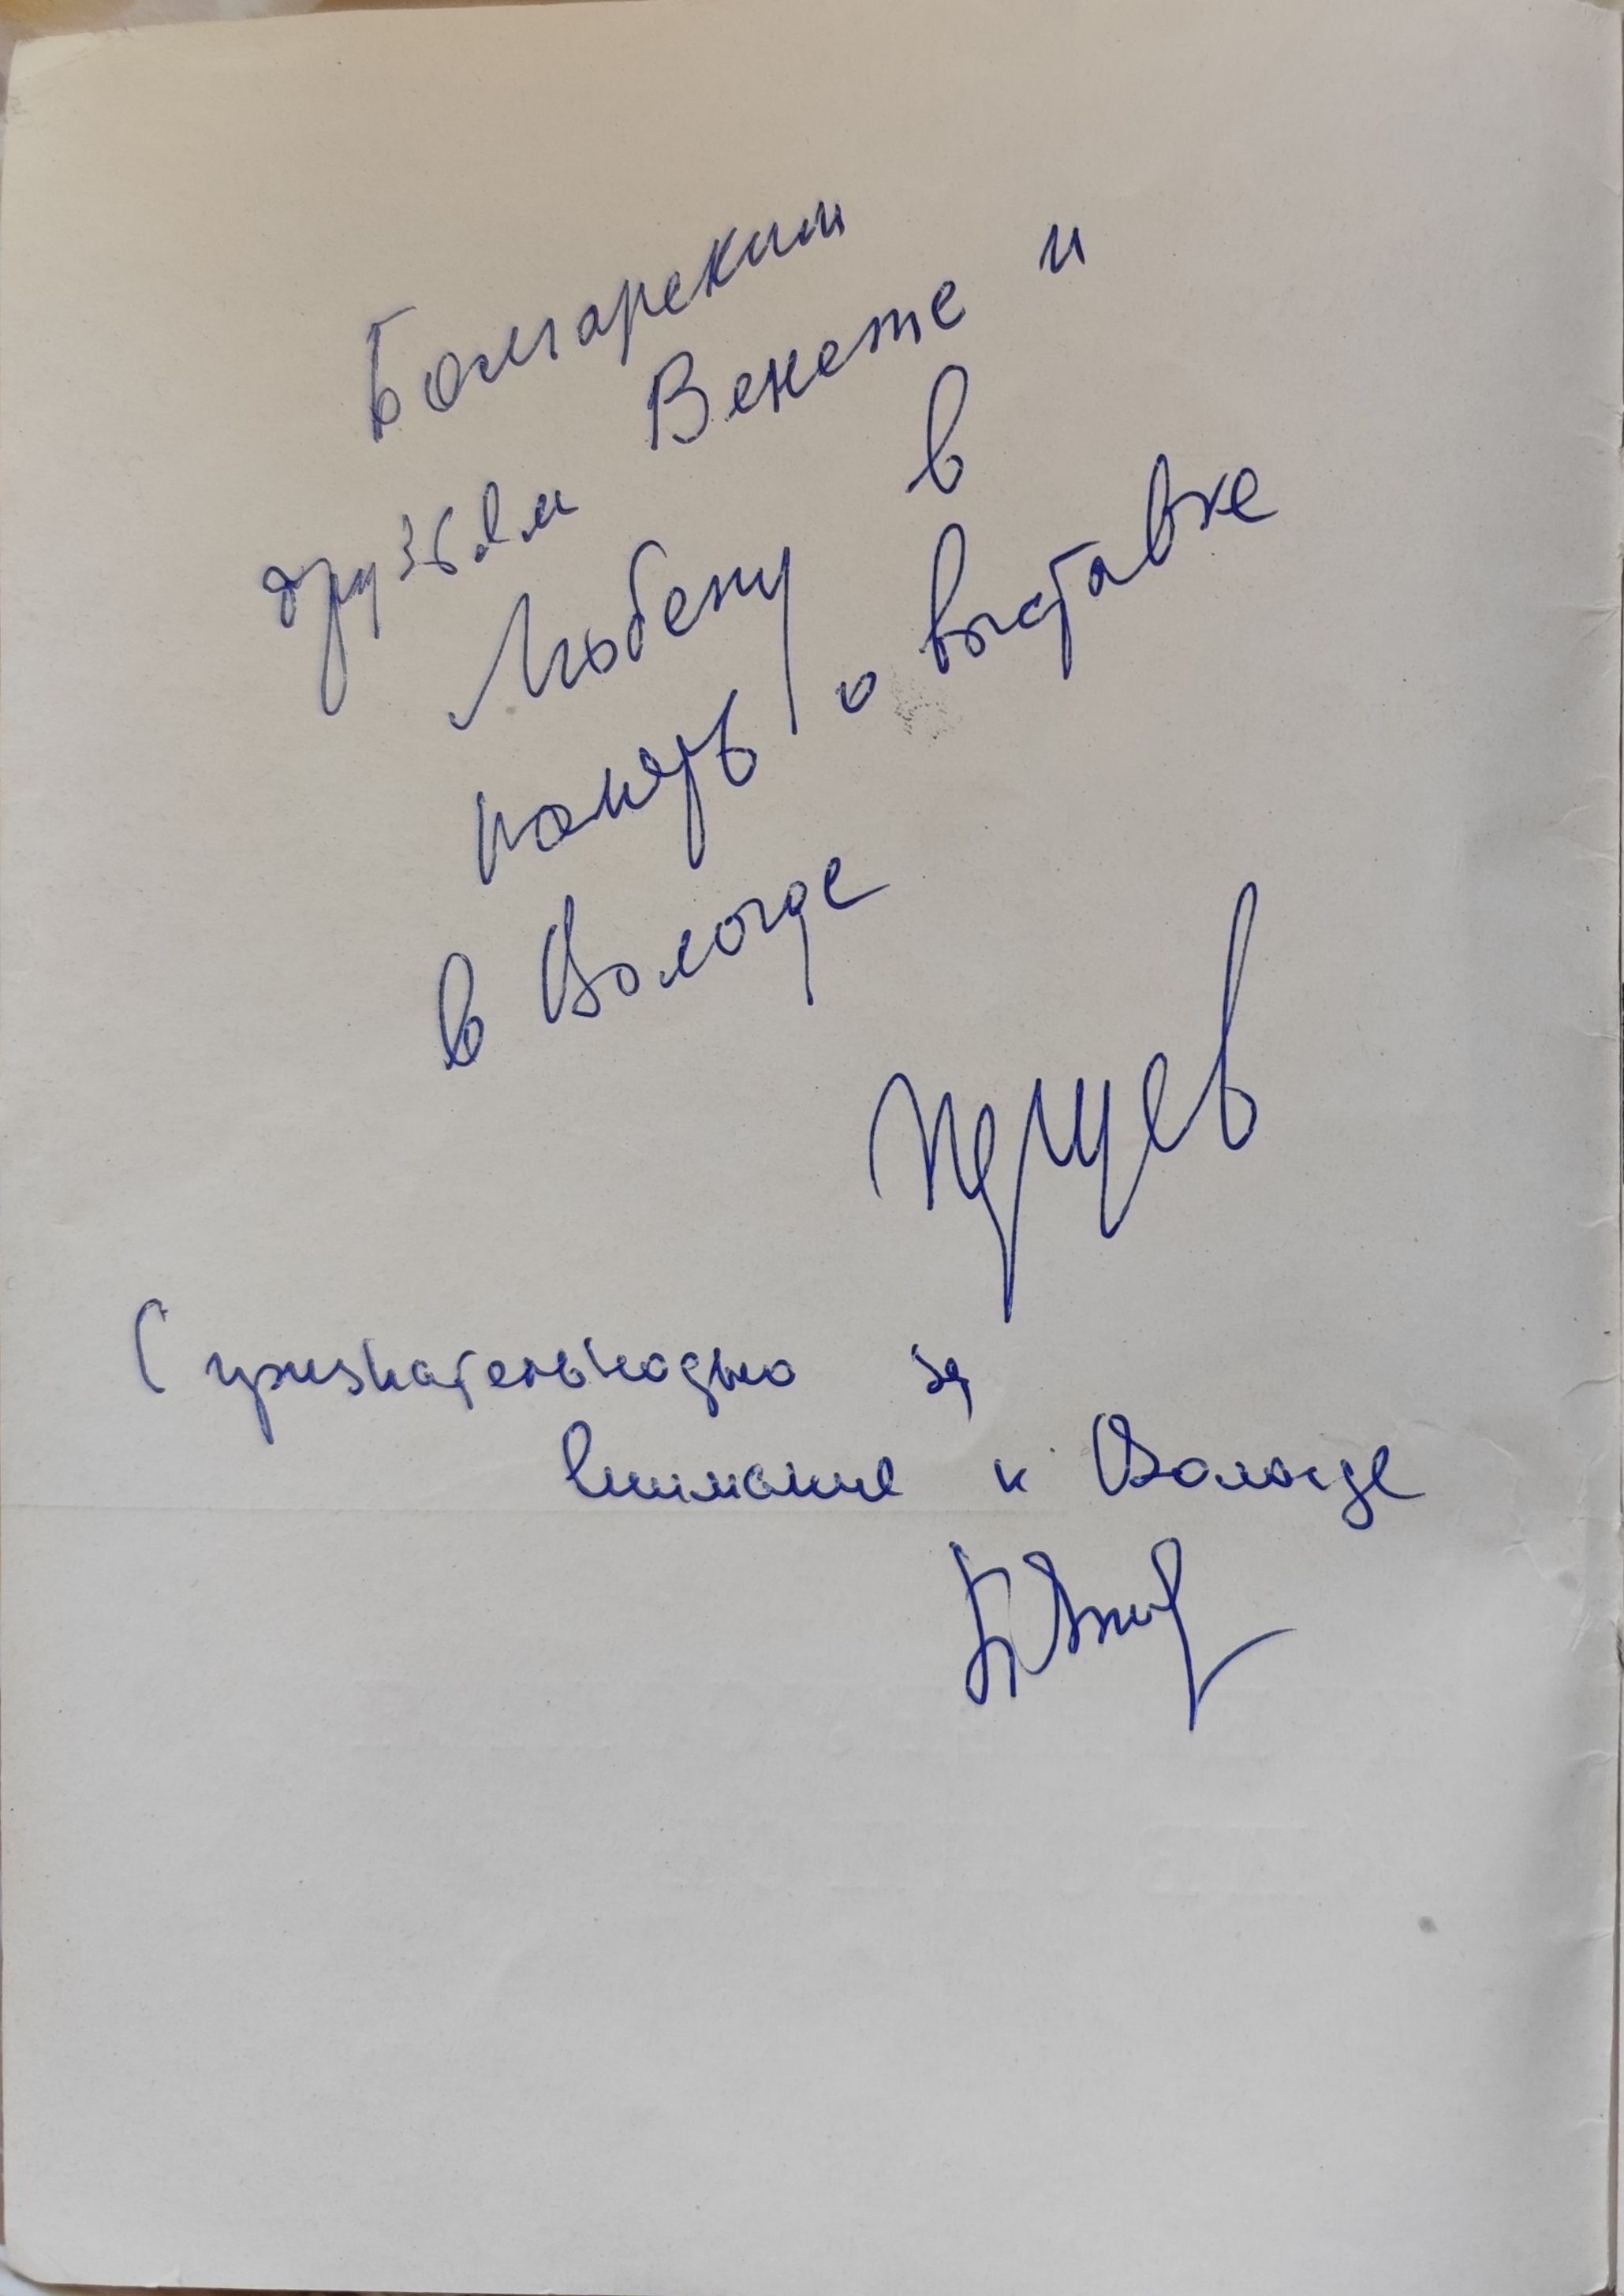 Болгарским
друзьям Венете и
Любену в
память о выставке
в Вологде
С признательностью за
внимание к Вологде